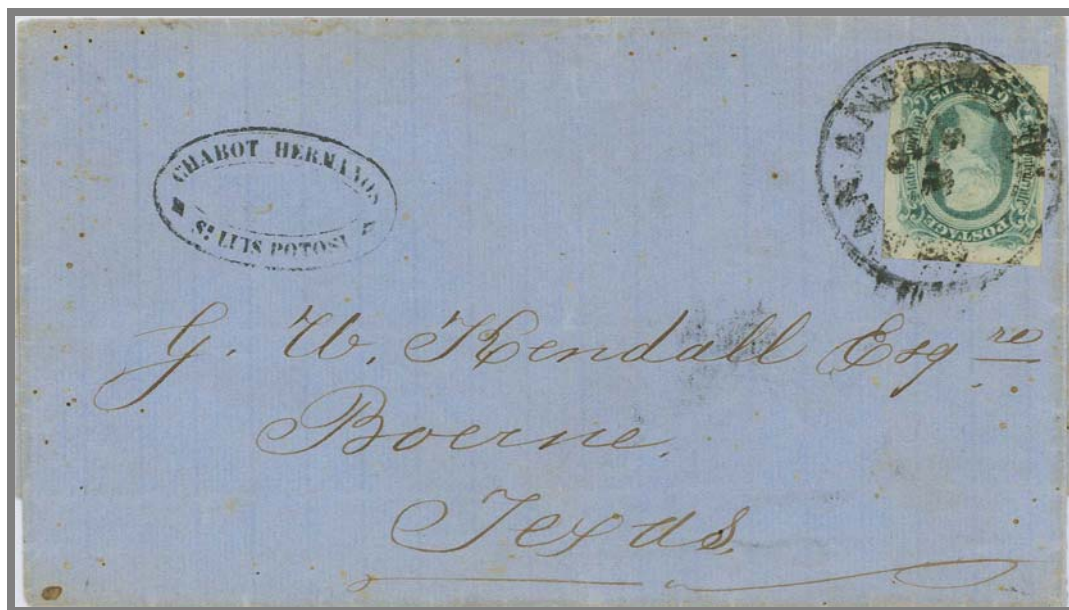 CHABOT HERMANOS
Sn LUIS POTOSI
SAN ANTONIO
POSTAGE
G. W. Kendall Esqre
Boerne.
Texas.